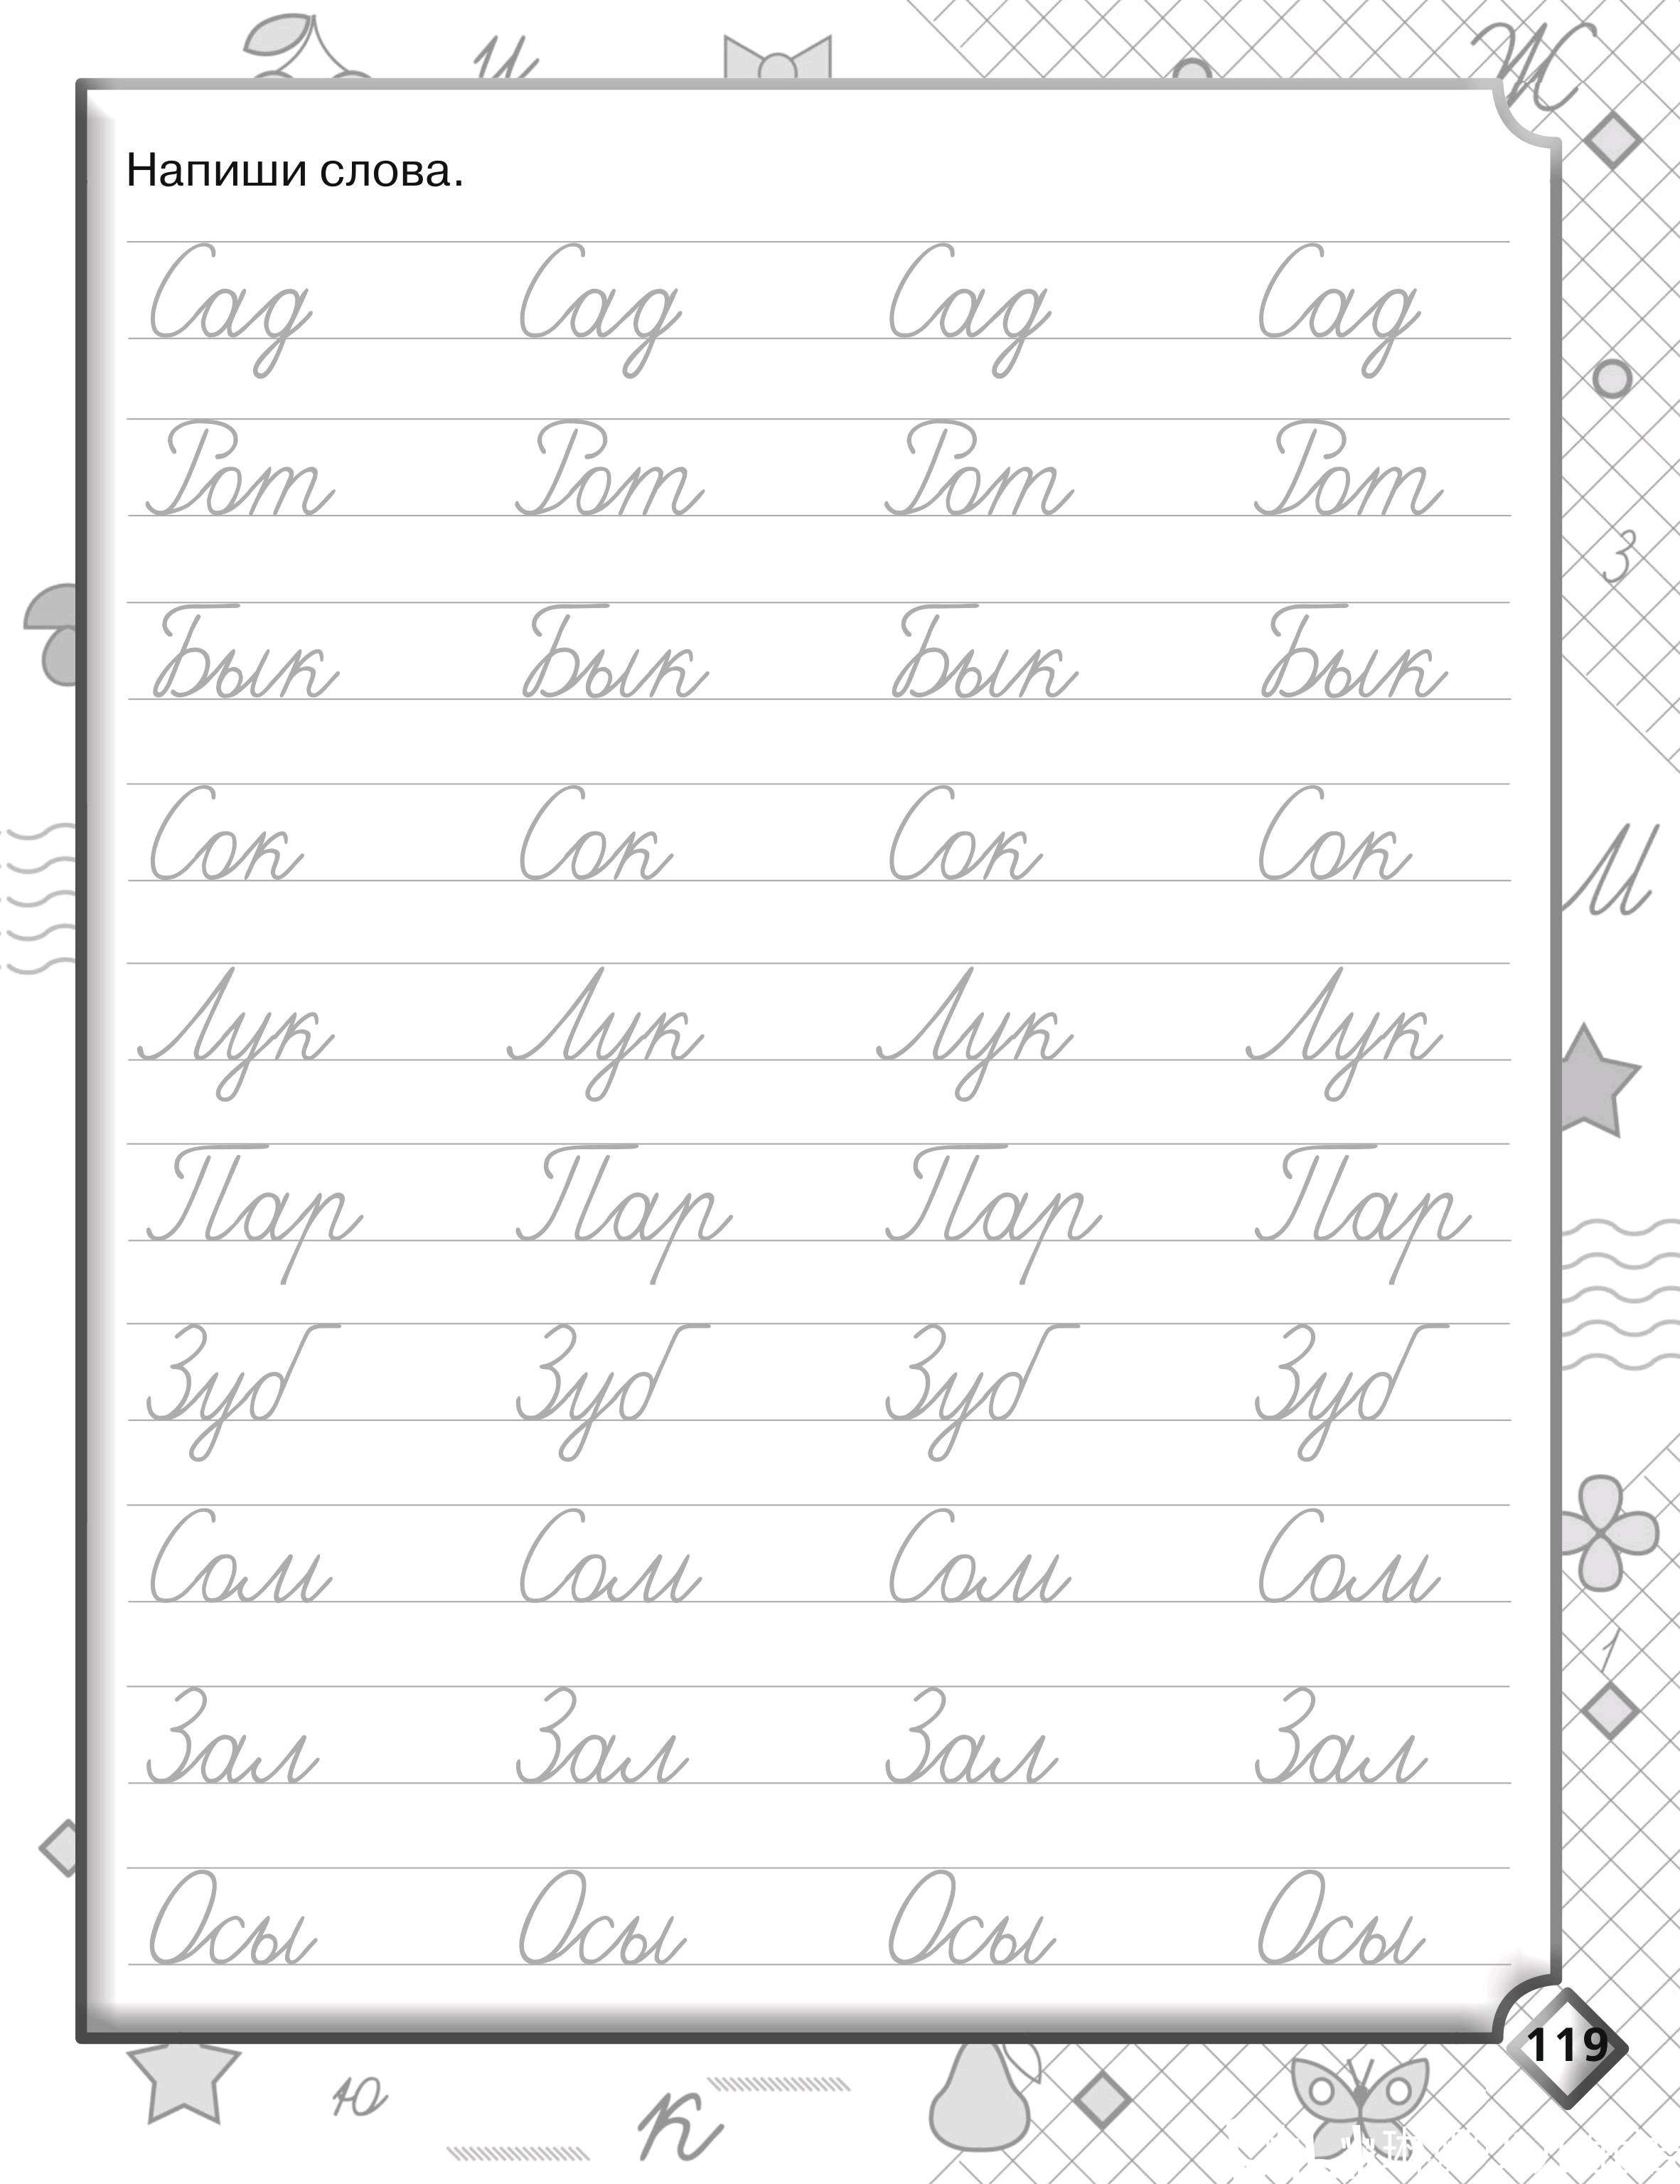 И
Ж
Напиши слова.
Сад Сад Сад Сад
Рот Рот Рот Рот
З
Бык Бык Бык Бык
Сок Сок Сок Сок
М
Лук Лук Лук Лук
Пар Пар Пар Пар
Зуб Зуб Зуб Зуб
Сом Сом Сом Сом
1
Зал Зал Зал Зал
Осы Осы Осы Осы
119
ю
к